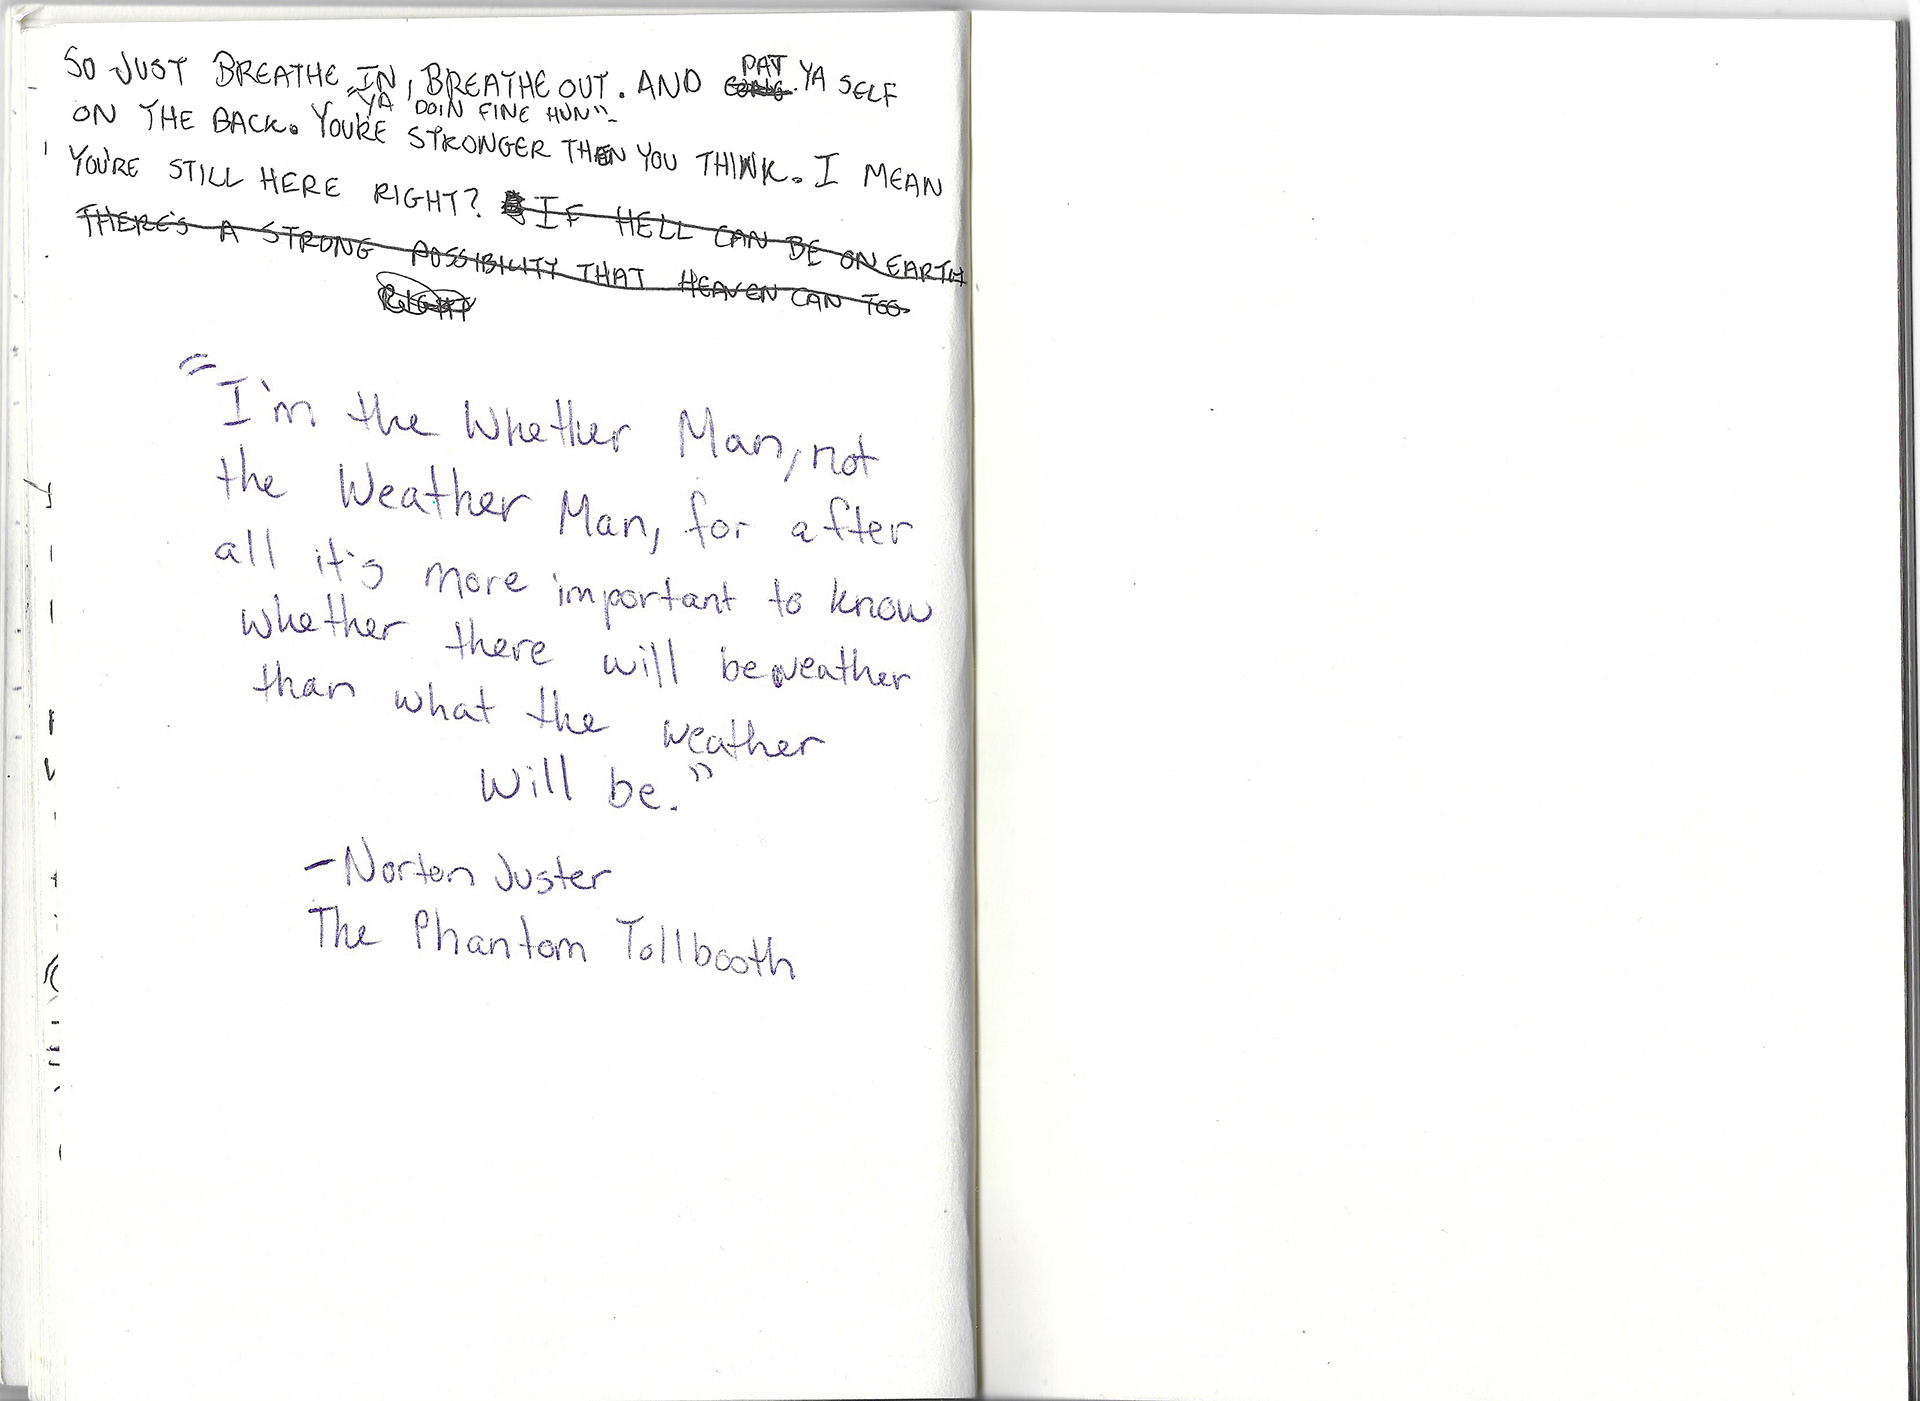 SO JUST BREATHE IN, BREATHE OUT. AND PAT YA SELF
"YA DOIN FINE HUN"
ON THE BACK. YOU'RE STRONGER THEN YOU THINK. I MEAN
YOU'RE STILL HERE RIGHT? IF HELL CAN BE ON EARTH
THERE'S A STRONG POSSIBILITY THAT HEAVEN CAN TOO
RIGHT
"I'm the Whether Man, not
the Weather Man, for after
all it's more important to know
whether there will be weather
than what the weather
will be."
-Norton Juster
The Phantom Tollbooth